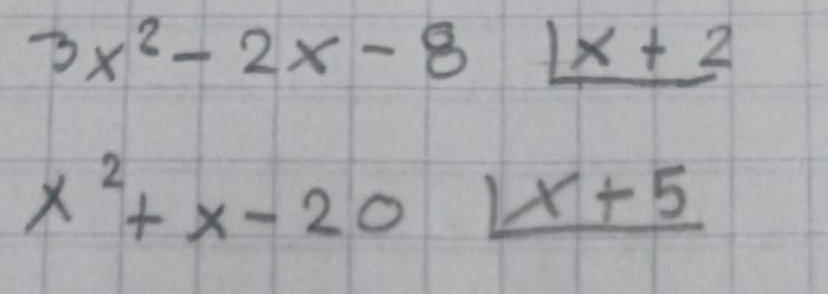 3x² - 2x - 8 |x + 2
x² + x - 20 |x + 5